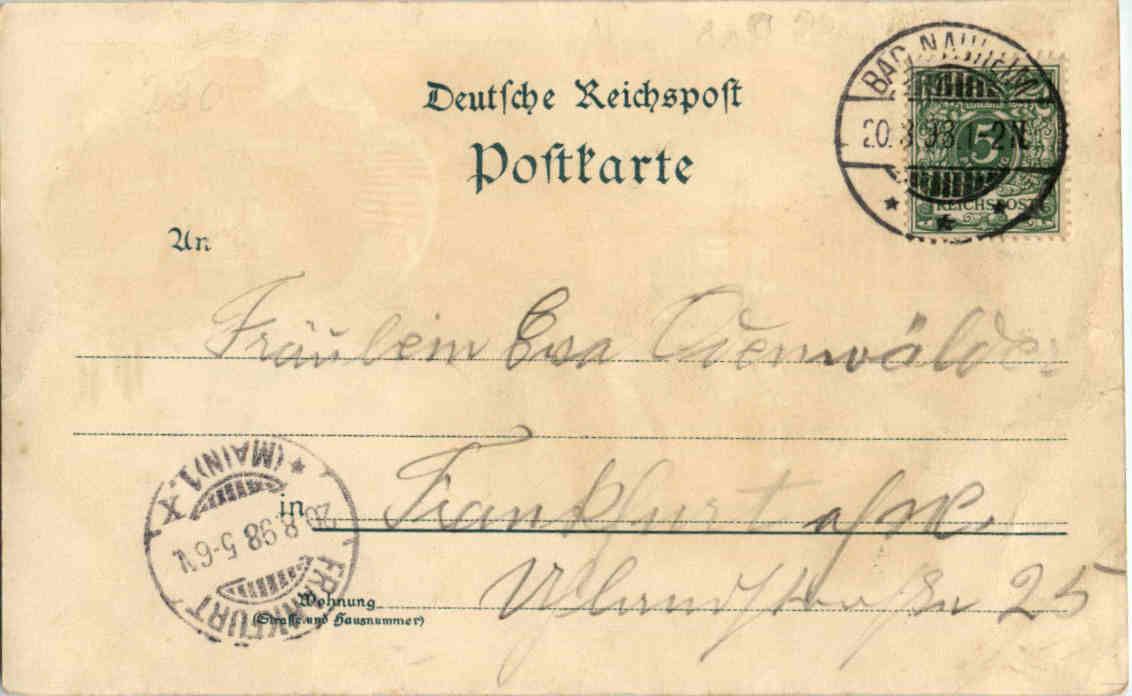 Deutsche Reichspost
Postkarte
BAD NAUHEIM
20.8.98.1-2N.
5
REICHSPOST
An
Fräulein Eva Odenwälder
Frankfurt a/M.
in
Uhlandstraße 25
Wohnung
(Straße und Hausnummer)
FRANKFURT
(MAIN) 1. X
20.8.98 5-6 N